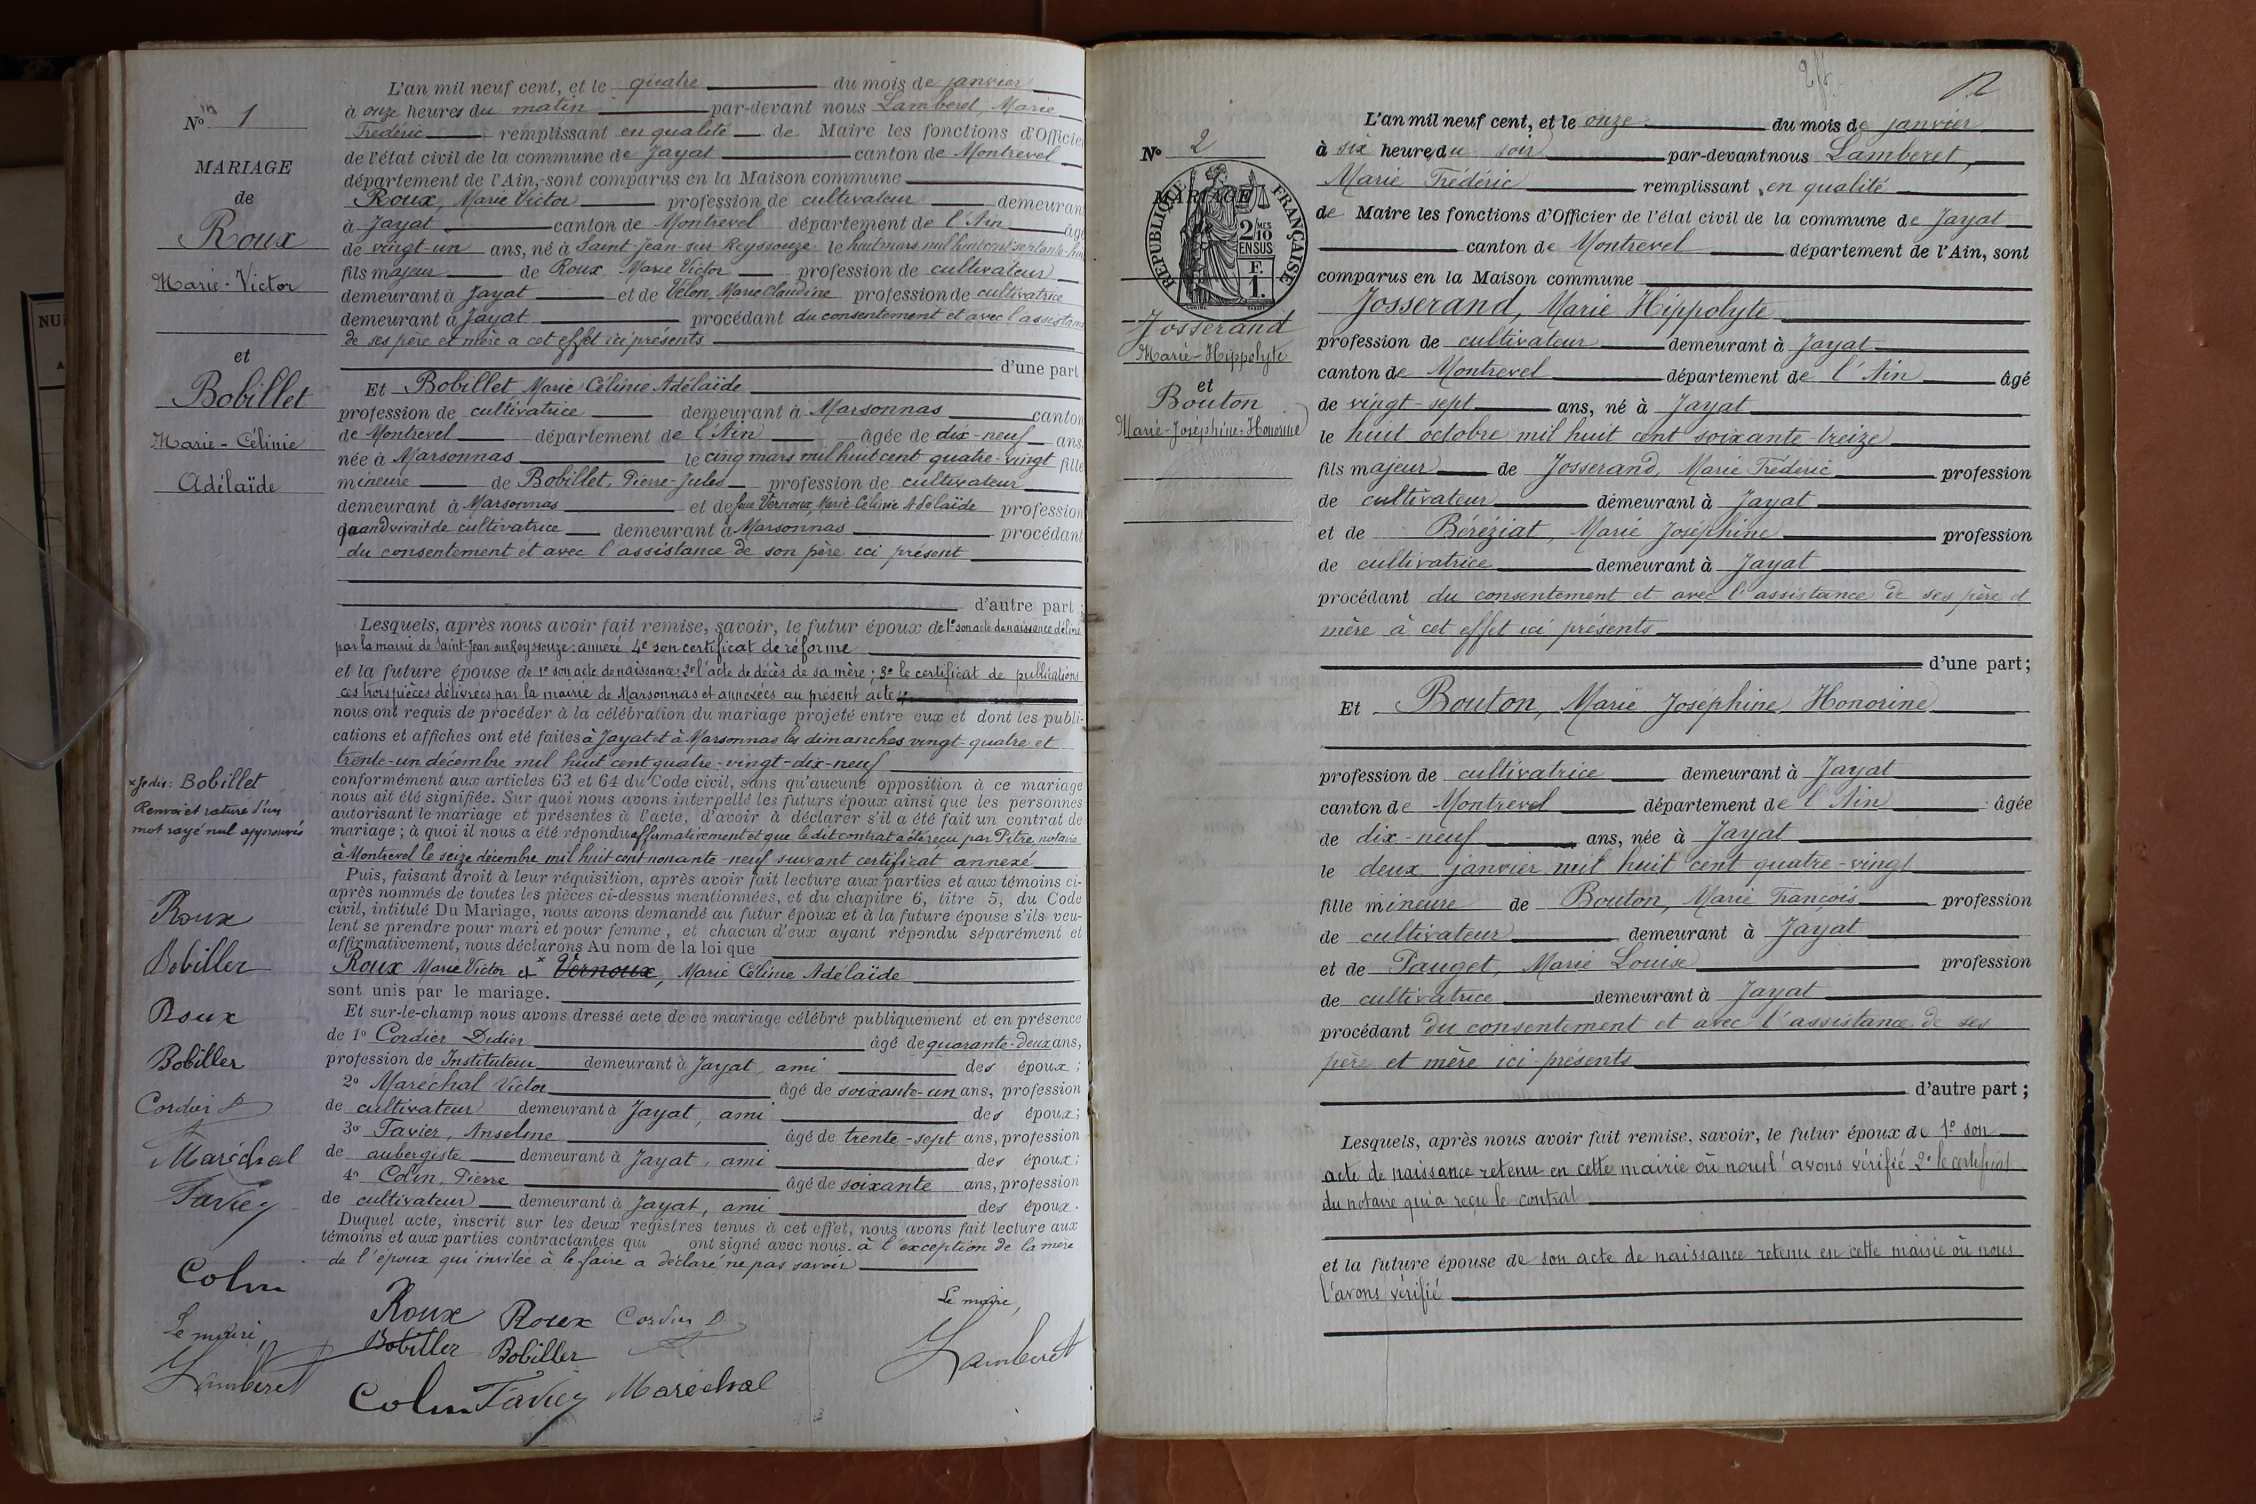 No 1
MARIAGE
de
Roux
Marie-Victor
et
Bobillet
Marie-Célinie
Adélaïde
L'an mil neuf cent, et le quatre du mois de janvier
à onze heures du matin par-devant nous Lamberet, Marie
Frédéric remplissant en qualité de Maire les fonctions d'Officier
de l'état civil de la commune de Jayat canton de Montrevel
département de l'Ain, sont comparus en la Maison commune
Roux, Marie Victor profession de cultivateur demeurant
à Jayat canton de Montrevel département de l'Ain âgé
de vingt-un ans, né à Saint Jean sur Reyssouze le huit mars mil huit cent septante-huit
fils majeur de Roux Marie Victor profession de cultivateur
demeurant à Jayat et de Velon, Marie Claudine profession de cultivatrice
demeurant à Jayat procédant du consentement et avec l'assistance
de ses père et mère a cet effet ici présents
d'une part
Et Bobillet Marie Céline Adélaïde
profession de cultivatrice demeurant à Marsonnas canton
de Montrevel département de l'Ain âgée de dix-neuf ans,
née à Marsonnas le cinq mars mil huit cent quatre-vingt fille
mineure de Bobillet, Pierre-Jules profession de cultivateur
demeurant à Marsonnas et de feue Vernoux, Marie Célinie Adélaïde profession
quand vivait de cultivatrice demeurant à Marsonnas procédant
du consentement et avec l'assistance de son père ici présent
d'autre part ;
Lesquels, après nous avoir fait remise, savoir, le futur époux de 1º son acte de naissance délivré
par la mairie de Saint-Jean sur Reyssouze : annexé 4º son certificat de réforme
et la future épouse de 1º son acte de naissance ; 2º l'acte de décès de sa mère ; 3º le certificat de publications
ces trois pièces délivrées par la mairie de Marsonnas et annexées au présent acte
nous ont requis de procéder à la célébration du mariage projeté entre eux et dont les publi-
cations et affiches ont été faites à Jayat et à Marsonnas les dimanches vingt-quatre et
trente-un décembre mil huit cent quatre-vingt-dix-neuf
conformément aux articles 63 et 64 du Code civil, sans qu'aucune opposition à ce mariage
nous ait été signifiée. Sur quoi nous avons interpellé les futurs époux ainsi que les personnes
autorisant le mariage et présentes à l'acte, d'avoir à déclarer s'il a été fait un contrat de
mariage ; à quoi il nous a été répondu affirmativement et que le dit contrat a été reçu par Pitre notaire
à Montrevel le seize décembre mil huit cent nonante-neuf suivant certificat annexé
Puis, faisant droit à leur réquisition, après avoir fait lecture aux parties et aux témoins ci-
après nommés de toutes les pièces ci-dessus mentionnées, et du chapitre 6, titre 5, du Code
civil, intitulé Du Mariage, nous avons demandé au futur époux et à la future épouse s'ils veu-
lent se prendre pour mari et pour femme, et chacun d'eux ayant répondu séparément et
affirmativement, nous déclarons Au nom de la loi que
Roux Marie Victor et × Vernoux, Marie Céline Adélaïde
sont unis par le mariage.
Et sur-le-champ nous avons dressé acte de ce mariage célébré publiquement et en présence
de 1º Cordier Didier âgé de quarante-deux ans,
profession de Instituteur demeurant à Jayat, ami des époux ;
2º Maréchal Victor âgé de soixante-un ans, profession
de cultivateur demeurant à Jayat, ami des époux ;
3º Favier, Anselme âgé de trente-sept ans, profession
de aubergiste demeurant à Jayat, ami des époux ;
4º Colin, Pierre âgé de soixante ans, profession
de cultivateur demeurant à Jayat, ami des époux.
Duquel acte, inscrit sur les deux registres tenus à cet effet, nous avons fait lecture aux
témoins et aux parties contractantes qui ont signé avec nous. à l'exception de la mère
de l'époux qui invitée à le faire a déclaré ne pas savoir
× Je dis : Bobillet
Renvoi et rature d'un
mot rayé nul approuvés
Roux
Bobiller
Roux
Bobiller
Cordier D
Maréchal
Favier
Colin
Le maire,
Lamberet
Roux Roux Cordier D
Bobiller Bobiller
Colin Favier Maréchal
Le maire,
Lamberet
2
No 2
MARIAGE
RÉPUBLIQUE FRANÇAISE
2 MES
10
EN SUS
F.
1.
Josserand
Marie-Hippolyte
et
Bouton
Marie-Joséphine-Honorine
L'an mil neuf cent, et le onze du mois de janvier
à six heures du soir par-devant nous Lamberet,
Marie Frédéric remplissant en qualité
de Maire les fonctions d'Officier de l'état civil de la commune de Jayat
canton de Montrevel département de l'Ain, sont
comparus en la Maison commune
Josserand, Marie Hippolyte
profession de cultivateur demeurant à Jayat
canton de Montrevel département de l'Ain âgé
de vingt-sept ans, né à Jayat
le huit octobre mil huit cent soixante-treize
fils majeur de Josserand, Marie Frédéric profession
de cultivateur demeurant à Jayat
et de Béréziat, Marie Joséphine profession
de cultivatrice demeurant à Jayat
procédant du consentement et avec l'assistance de ses père et
mère à cet effet ici présents
d'une part ;
Et Bouton, Marie Joséphine Honorine
profession de cultivatrice demeurant à Jayat
canton de Montrevel département de l'Ain âgée
de dix-neuf ans, née à Jayat
le deux janvier mil huit cent quatre-vingt
fille mineure de Bouton, Marie François profession
de cultivateur demeurant à Jayat
et de Pauget, Marie Louise profession
de cultivatrice demeurant à Jayat
procédant du consentement et avec l'assistance de ses
père et mère ici présents
d'autre part ;
Lesquels, après nous avoir fait remise, savoir, le futur époux de 1º son
acte de naissance retenu en cette mairie où nous l'avons vérifié 2º le certificat
du notaire qui a reçu le contrat
et la future épouse de son acte de naissance retenu en cette mairie où nous
l'avons vérifié